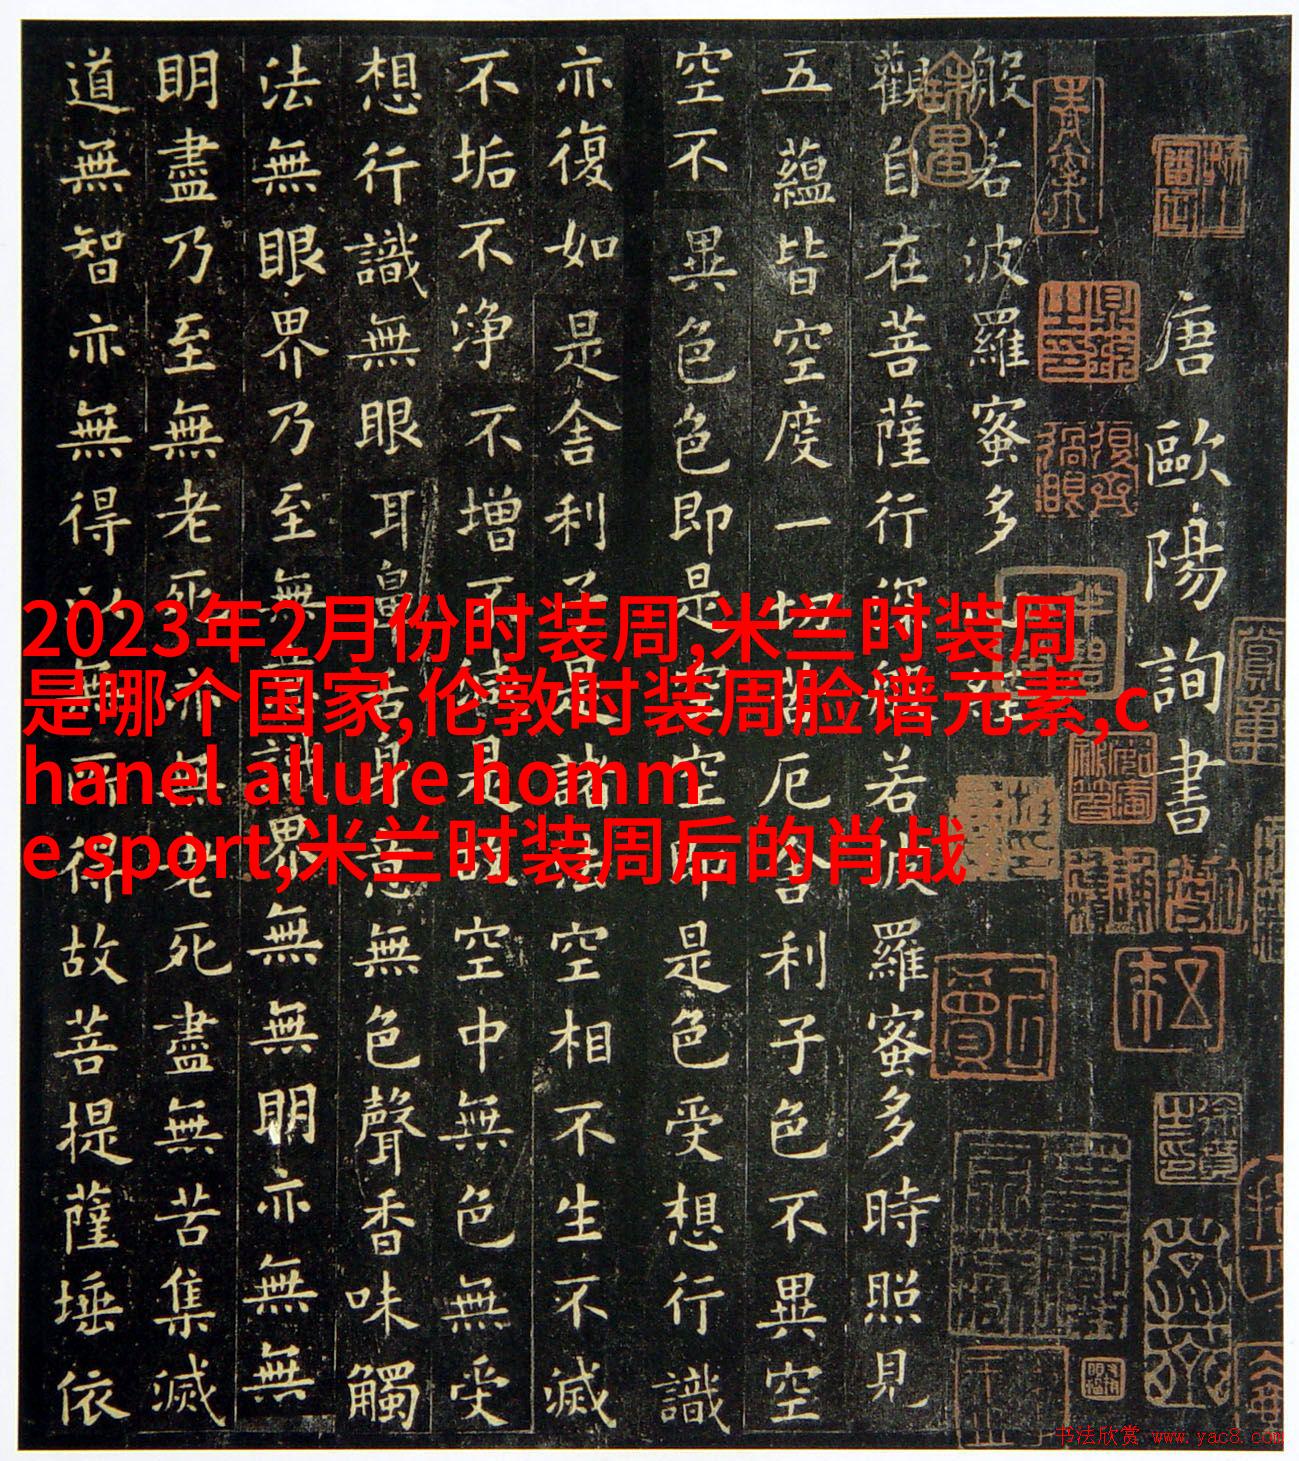 唐歐陽詢書
般若波羅蜜多心經
觀自在菩薩行深般若波羅蜜多時照見
五蘊皆空度一切苦厄舍利子色不異空
空不異色色即是空空即是色受想行識
亦復如是舍利子是諸法空相不生不滅
不垢不浄不增不減是故空中無色無受
想行識無眼耳鼻舌身意無色聲香味觸
法無眼界乃至無意識界無無明亦無無
明盡乃至無老死亦無老死盡無苦集滅
道無智亦無得以無所得故菩提薩埵依
2023年2月份时装周,米兰时装周
是哪个国家,伦敦时装周脸谱元素,c
hanel allure homm
e sport,米兰时装周后的肖战
书法欣赏 www.yac8.com